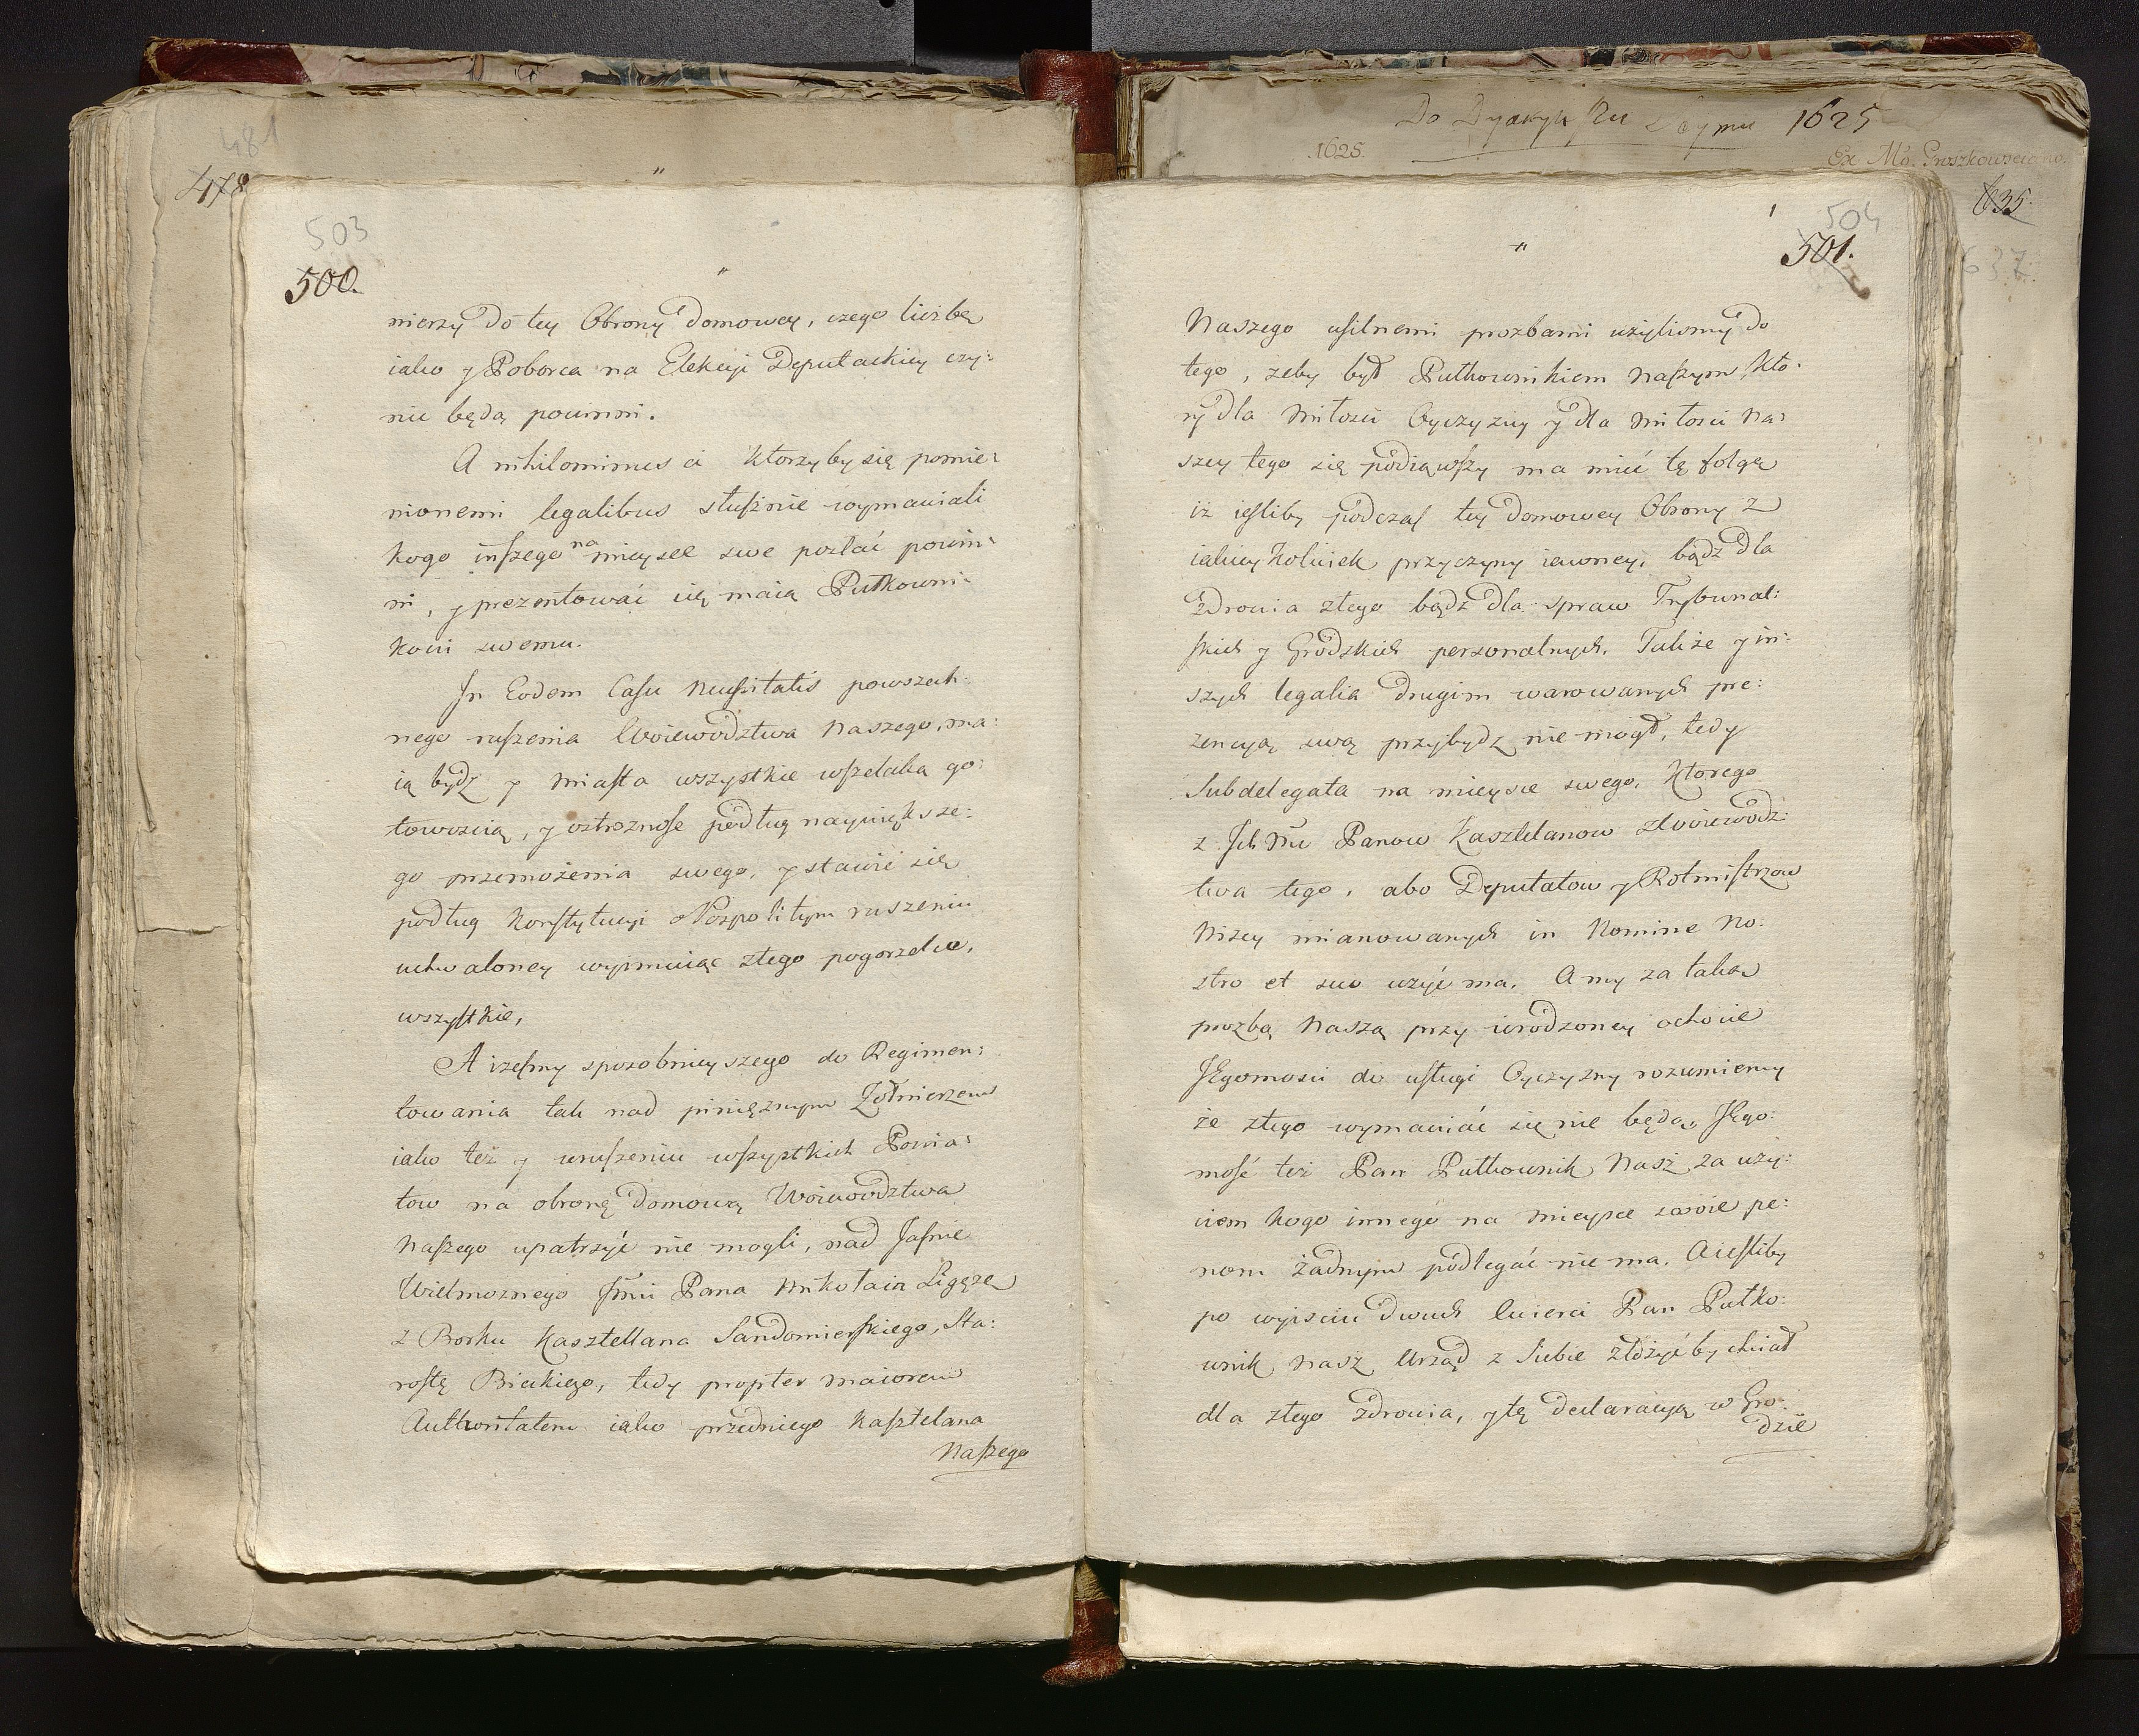 481
478
503
500.
mierzy do tey Obrony domowey, czego liczbę
iako y Poborca na Elekcyi Deputackiey czy:
nić będą powinni.
A nihilominus ci Ktorzyby się pomie:
nionemi legalibus słusznie wymawiali
kogo inszego na mieysce swe posłać powin:
ni, y prezentować się maią Pułkowni:
kowi swemu.
In Eodem Casu necessitatis powszech:
nego ruszenia Woiewodztwa Naszego, ma:
ią bydz y Miasta wszystkie wszelaką go:
towoscią, y ostroznosc podług naywiększe:
go przemożenia swego, y stawić się
podług Konstytucyi o Pospolitym ruszeniu
uchwaloney wyimuiąc ztego pogorzelce,
wszystkie,
A izesmy sposobnieyszego do Regimen:
towania tak nad pinięznym Zołnierzem
iako też y wruszeniu wszystkich Powia:
tow na obronę domową Woiewodztwa
Naszego upatrzyć nie mogli, nad Jasnie
Wielmoznego Jmci Pana Mikołaia Ligęzę
z Borku Kasztellana Sandomierskiego, Sta:
rostę Bieckiego, tedy propter maiorem
Authoritatem iako przedniego Kasztelana
Naszego
1625
1625.
635.
637.
504
501.
Naszego usilnemi prozbami użylismy do
tego, zeby był Pułkownikiem naszym, Kto:
ry dla Miłosci Oyczyzny y dla miłosci Na:
szey tego się podiąwszy ma mieć tę folgę
iż iesliby podczas tey domowey Obrony z
iakieykolwiek przyczyny iawney, bądz dla
zdrowia złego bądz dla spraw Trybunal:
skich y Grodzkich personalnych. Także y in:
szych legalia drugim warowanych pre:
zencyą swą przybydz nie mogł, tedy
Subdelegata na mieysce swego, Ktorego
z Ich Mci Panow Kasztelanow z Woiewodz:
twa tego, abo Deputatow y Rotmistrzow
Niżey mianowanych in Nomine No:
stro et suo użyć ma. A my za taką
prozbą Naszą przy wrodzoney ochocie
JEgomosci do usługi Oyczyzny rozumiemy
że ztego wymawiać się nie będą, JEgo:
mość też Pan Pułkownik Nasz za uży:
ciem kogo innego na Mieysce swoie pe:
nom żadnym podlegać nie ma. A iesliby
po wyisciu dwuch cwierci Pan Pułko:
wnik Nasz Urząd z Siebie złożyć by chciał
dla złego zdrowia, y tę declaracyą w Gro:
dzie